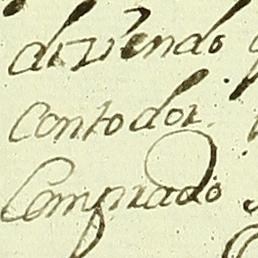 divendo
contodor
Comprado